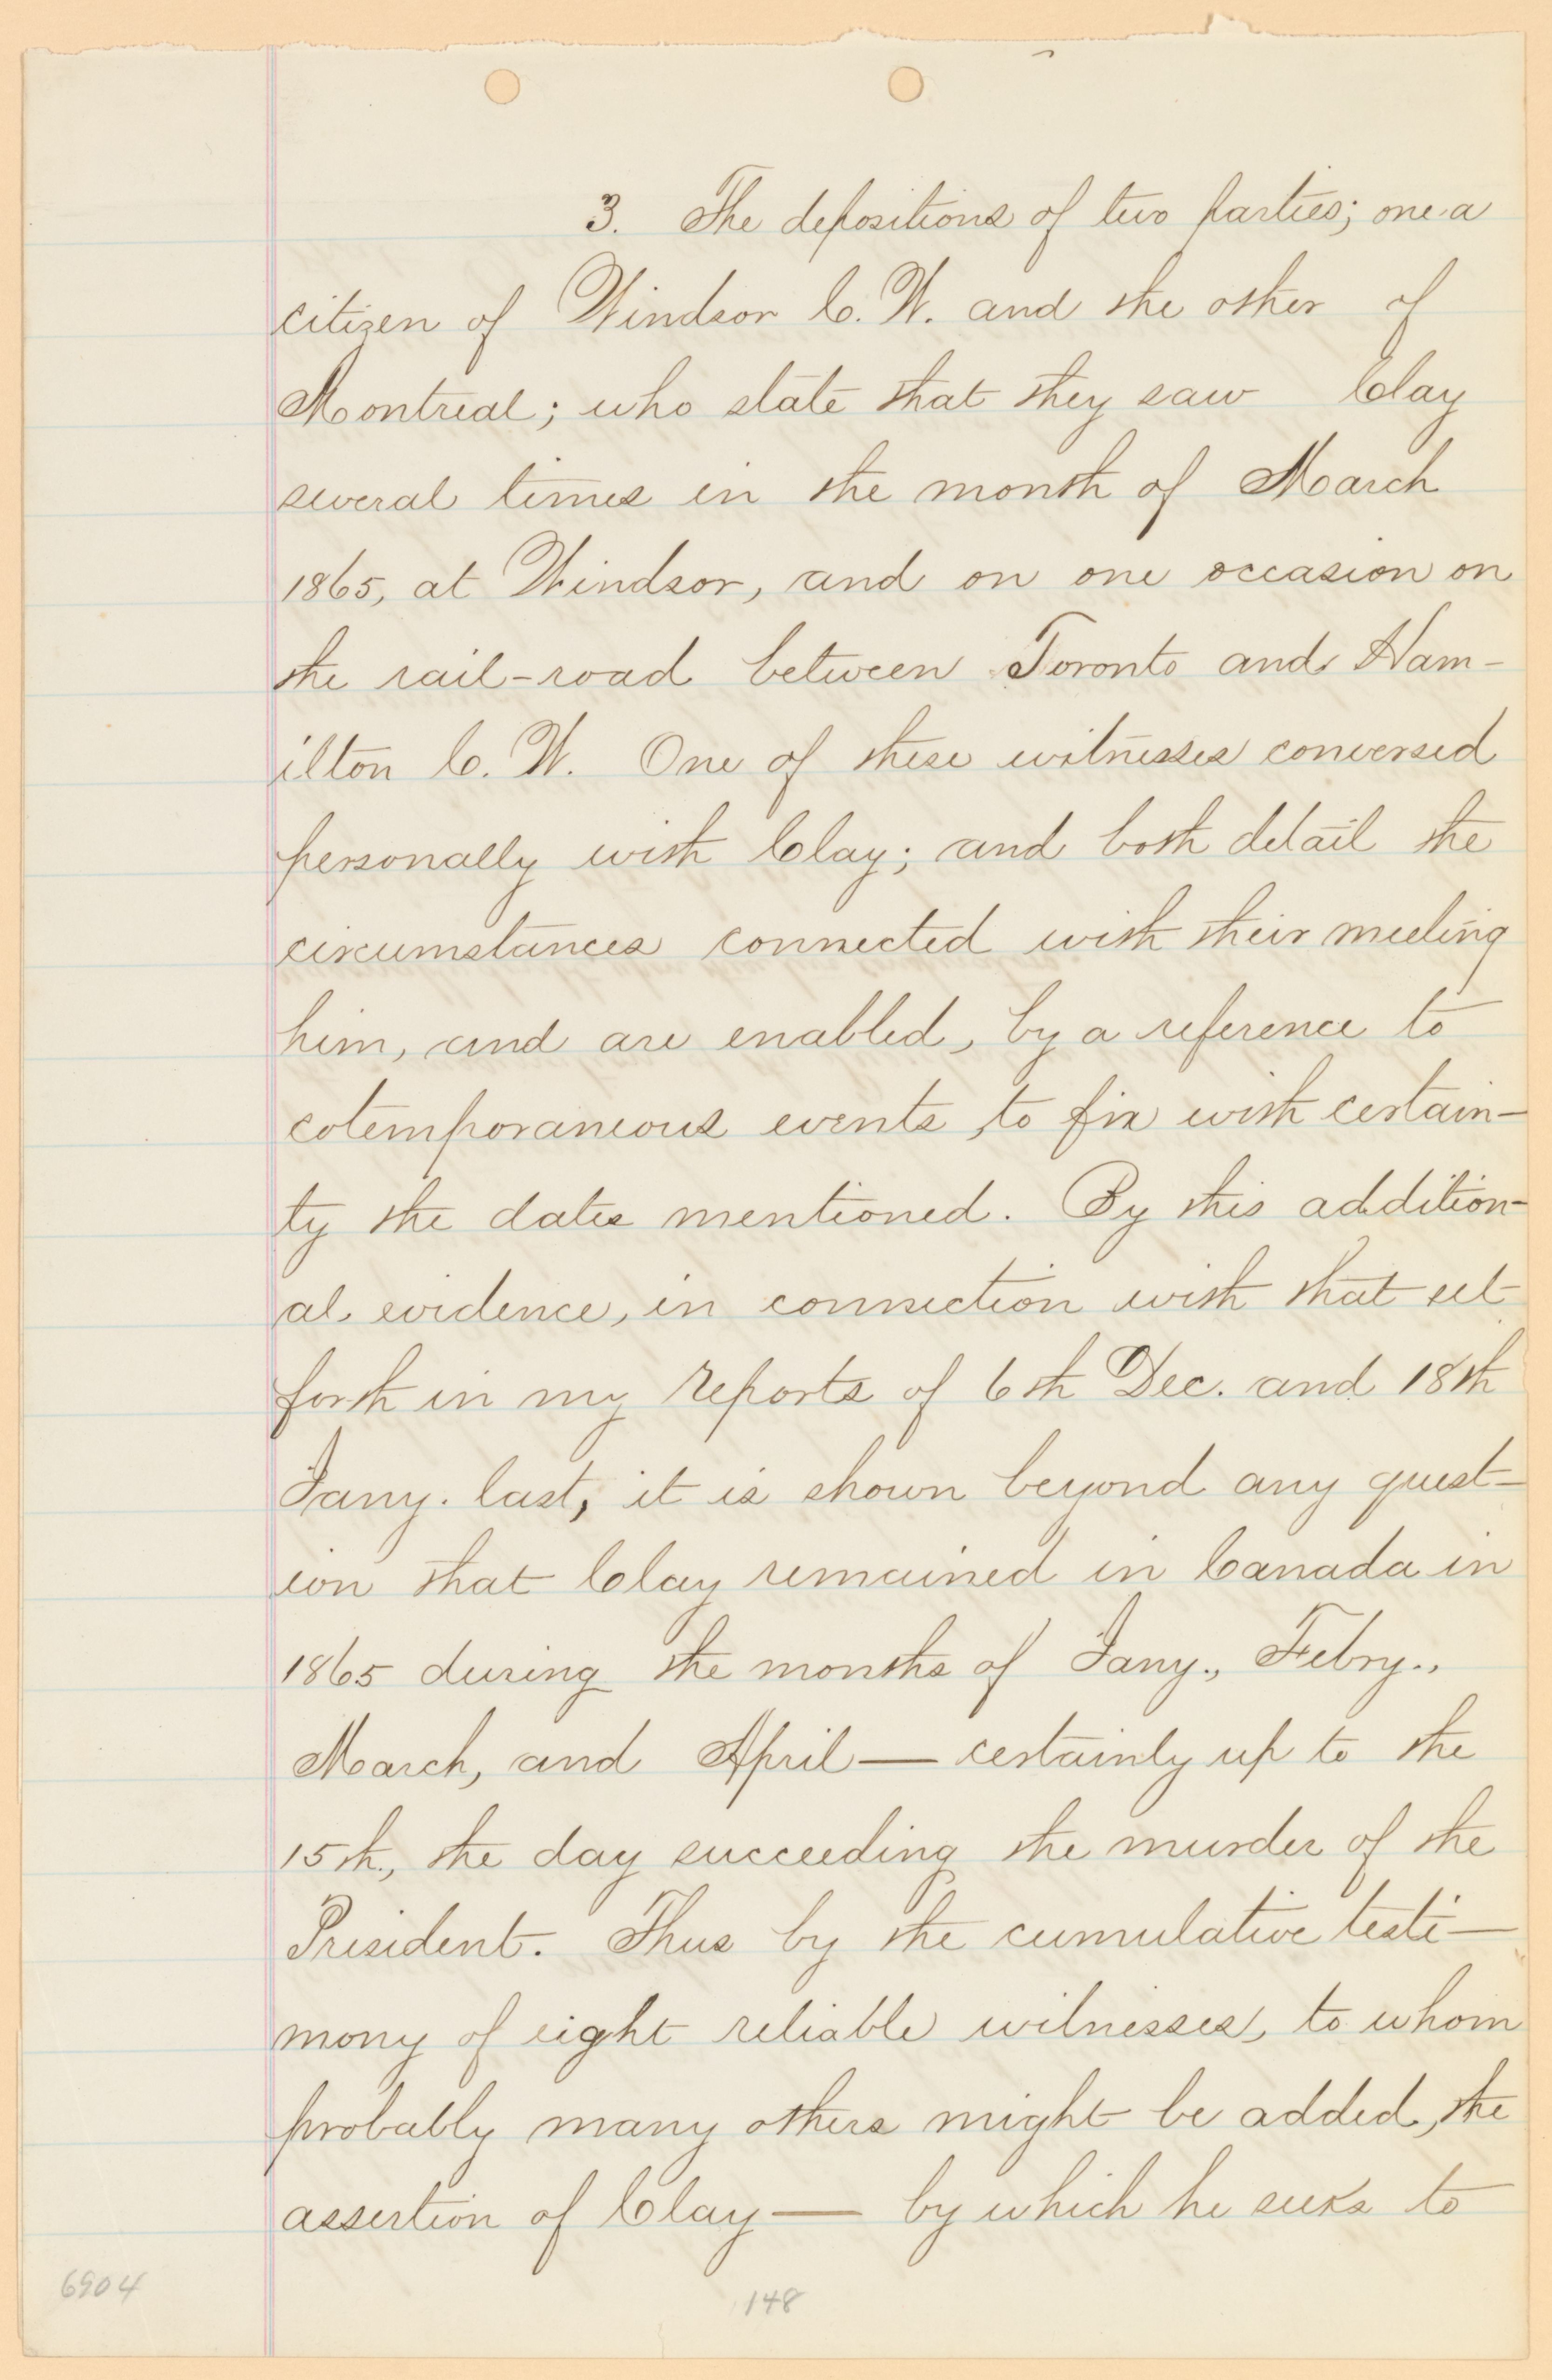 3. The depositions of two parties; one a
citizen of Windsor C. W. and the other of
Montreal; who state that they saw Clay
several times in the month of March
1865, at Windsor, and on one occasion on
the rail-road between Toronto and Ham-
ilton C. W. One of these witnesses conversed
personally with Clay; and both detail the
circumstances connected with their meeting
him, and are enabled, by a reference to
cotemporaneous events, to fix with certain-
ty the dates mentioned. By this addition-
al evidence, in connection with that set
forth in my reports of 6th Dec. and 18th
Jany. last, it is shown beyond any quest-
ion that Clay remained in Canada in
1865 during the months of Jany., Febry.,
March, and April — certainly up to the
15th., the day succeeding the murder of the
President. Thus by the cumulative testi-
mony of eight reliable witnesses, to whom
probably many others might be added, the
assertion of Clay — by which he seeks to
6904
148